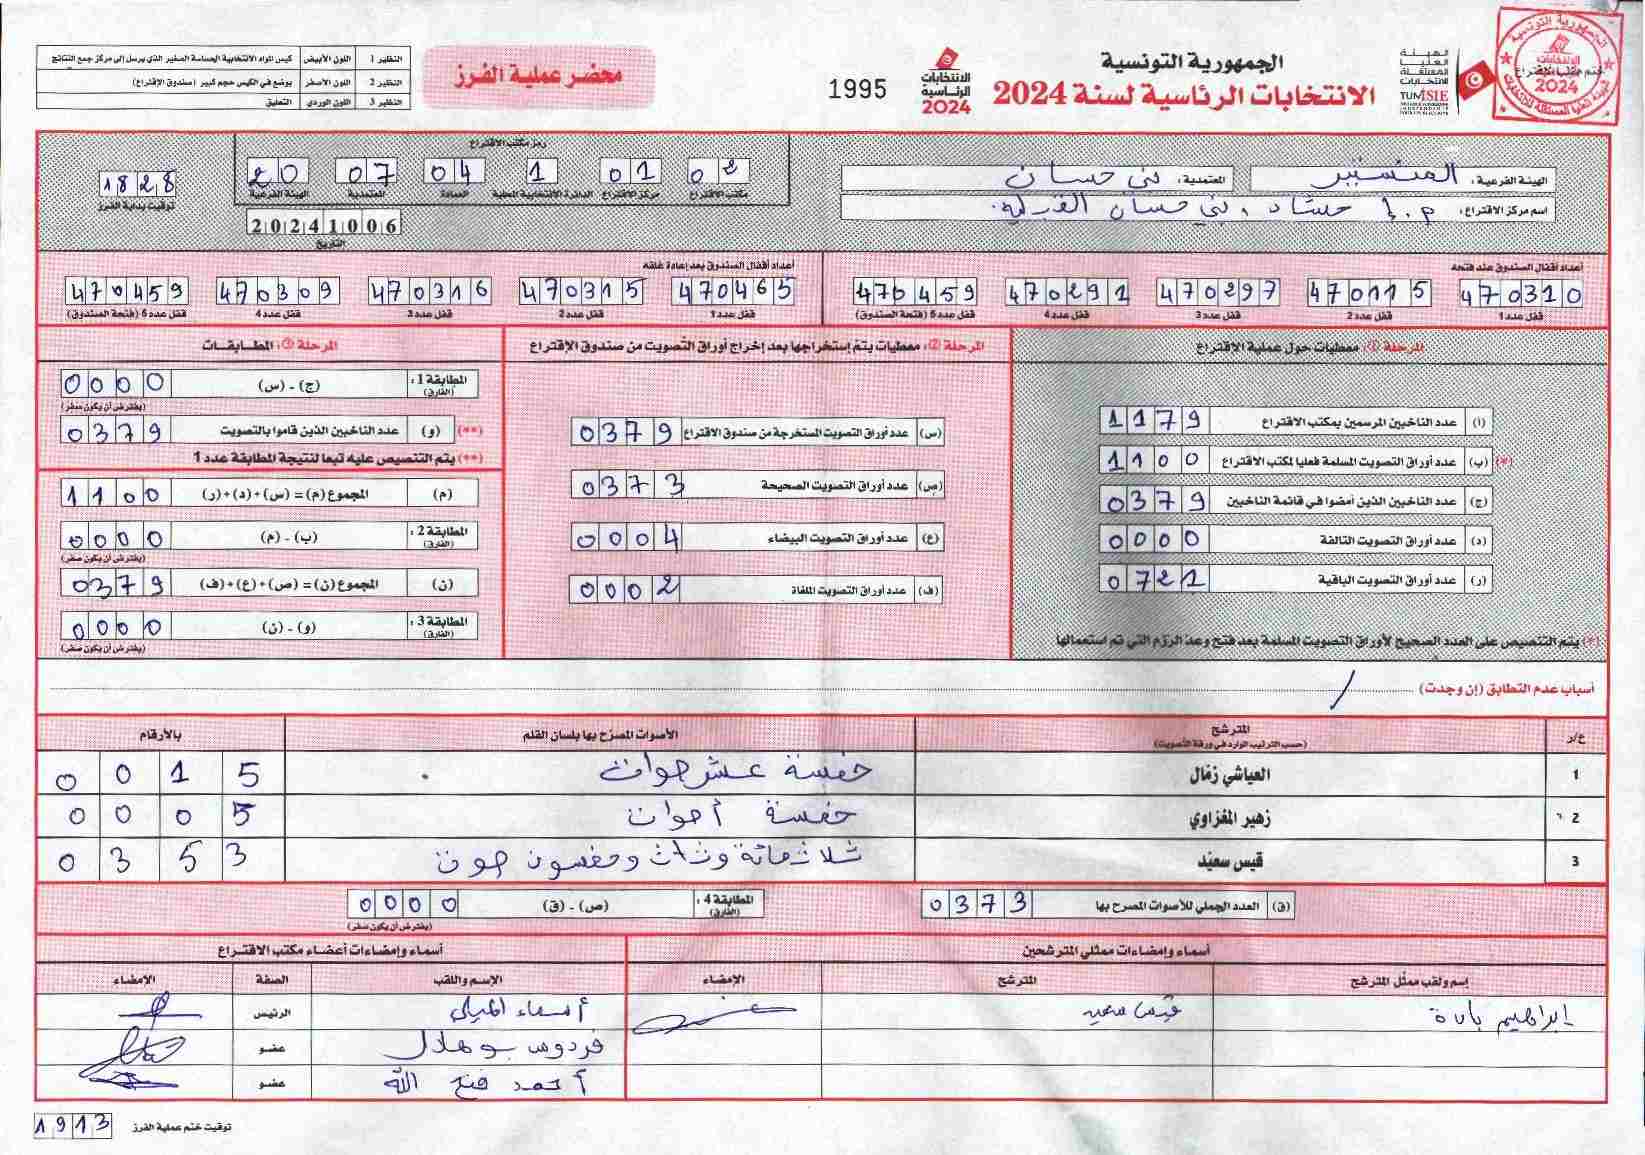 الجمهورية التونسية
الانتخابات الرئاسية لسنة 2024
الهيئة العليا المستقلة للانتخابات
TUNISIE
ختم مكتب الاقتراع
الجمهورية التونسية
الانتخابات الرئاسية 2024
الانتخابات الرئاسية 2024
1995
محضر عملية الفرز
النظير 1 اللون الأبيض كيس المواد الانتخابية الحساسة الصغير الذي يرسل إلى مركز جمع النتائج
النظير 2 اللون الأصفر يوضع في الكيس حجم كبير (صندوق الاقتراع)
النظير 3 اللون الوردي التعليق
الهيئة الفرعية: المنستير المعتمدية: بني حسان
اسم مركز الاقتراع: م. إ. حشاد، بني حسان
رمز مكتب الاقتراع
02 01 1 04 07 20
مكتب الاقتراع مركز الاقتراع الدائرة الانتخابية المحلية العمادة المعتمدية الهيئة الفرعية
20241006
التاريخ
1828
توقيت بداية الفرز
أعداد أقفال الصندوق عند فتحه
470310 470115 470297 470291 470459
قفل عدد1 قفل عدد2 قفل عدد3 قفل عدد4 قفل عدد5 (فتحة الصندوق)
أعداد أقفال الصندوق بعد إعادة غلقه
470465 470315 470316 470309 470459
قفل عدد1 قفل عدد2 قفل عدد3 قفل عدد4 قفل عدد5 (فتحة الصندوق)
المرحلة ①: معطيات حول عملية الاقتراع
(ا) عدد الناخبين المرسمين بمكتب الاقتراع 1179
(*) (ب) عدد أوراق التصويت المسلمة فعليا لمكتب الاقتراع 1100
(ج) عدد الناخبين الذين أمضوا في قائمة الناخبين 0379
(د) عدد أوراق التصويت التالفة 0000
(ر) عدد أوراق التصويت الباقية 0721
(*) يتم التنصيص على العدد الصحيح لأوراق التصويت المسلمة بعد فتح وعد الرزم التي تم استعمالها
المرحلة ②: معطيات يتم إستخراجها بعد إخراج أوراق التصويت من صندوق الإقتراع
(س) عدد أوراق التصويت المستخرجة من صندوق الاقتراع 0379
(ص) عدد أوراق التصويت الصحيحة 0373
(ع) عدد أوراق التصويت البيضاء 0004
(ف) عدد أوراق التصويت الملغاة 0002
المرحلة ③: المطابقات
المطابقة 1: (الفارق) (ج) - (س) 0000
(يفترض أن يكون صفر)
(**) (و) عدد الناخبين الذين قاموا بالتصويت 0379
(**) يتم التنصيص عليه تبعا لنتيجة المطابقة عدد 1
(م) المجموع (م) = (س)+(د)+(ر) 1100
المطابقة 2: (الفارق) (ب) - (م) 0000
(يفترض أن يكون صفر)
(ن) المجموع (ن) = (ص)+(ع)+(ف) 0379
المطابقة 3: (الفارق) (و) - (ن) 0000
(يفترض أن يكون صفر)
أسباب عدم التطابق (إن وجدت) /
ع/ر المترشح (حسب الترتيب الوارد في ورقة التصويت) الأصوات المصرّح بها بلسان القلم بالأرقام
1 العياشي زمّال خمسة عشر صوات 0015
2 زهير المغزاوي خمسة أصوات 0005
3 قيس سعيّد ثلاثمائة وثلاث وخمسون صوت 0353
(ق) العدد الجملي للأصوات المصرح بها 0373
المطابقة 4: (الفارق) (ص) - (ق) 0000
(يفترض أن يكون صفر)
أسماء وإمضاءات ممثلي المترشحين
إسم ولقب ممثل المترشح المترشح الإمضاء
إبراهيم قيس سعيد
أسماء وإمضاءات أعضاء مكتب الاقتراع
الإسم واللقب الصفة الإمضاء
أسماء الميلي الرئيس
فردوس بوهلال عضو
أحمد فتح الله عضو
توقيت ختم عملية الفرز 1913